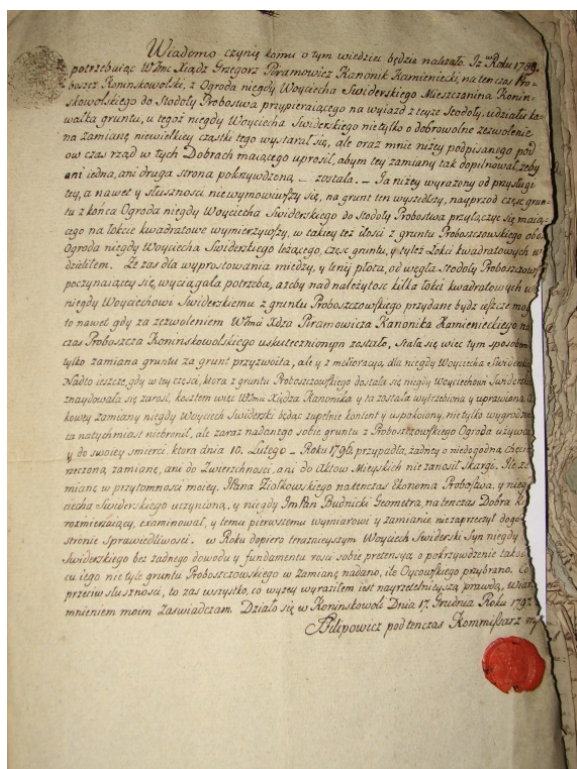 Wiadomo czynię komu o tym wiedzieć będzie należało. Iż Roku 179
potrzebuiąc WJmć Xiądz Grzegorz Piramowicz Kanonik Kamieniecki, na ten czas Pro-
boszcz Koninskowolski, z Ogroda niegdy Woyciecha Swiderskiego Mieszczanina Konin-
skowolskiego do Stodoły Probostwa przypieraiącego na wyiazd z teyże Stodoły, udziału ka-
wałka gruntu, u tegoż niegdy Woyciecha Swiderskiego nietylko o dobrowolne zezwolenie
na zamianę niewielkiey cząstki tego wystarał się, ale oraz mnie niżey podpisanego pod
ow czas rząd w tych Dobrach maiącego uprosił, abym tey zamiany tak dopilnował, żeby
ani iedna, ani druga strona pokrzywdzoną - została. - Ja niżey wyrażony od przysługi
tey, a nawet y słuszności niewymowiwszy się, na grunt ten wyszedłszy, nayprzod część grun-
tu z końca Ogroda niegdy Woyciecha Swiderskiego do Stodoły Probostwa przyłączyć się maią-
cego na łokcie kwadratowe wymierzywszy, w takiey też ilości z gruntu Proboszczowskiego obo
Ogroda niegdy Woyciecha Swiderskiego leżącego, część gruntu, y tyleż Łokci kwadratowych w
dzieliłem. Ze zaś dla wyprostowania miedzy, y leniy płotu, od węgła Stodoły Proboszczows
poczynaiącey się, wyciągała potrzeba, ażeby nad należytość kilka łokci kwadratowych
niegdy Woyciechowi Swiderskiemu z gruntu Proboszczowskiego przydane bydź ieszcze mo
to nawet gdy za zezwoleniem WJmci Xdza Piramowicza Kanonika Kamienieckiego na
czas Proboszcza Koninskowolskiego uskutecznionym zostało, stała się więc tym sposobem
tylko zamiana gruntu za grunt przyzwoita, ale y z melioracyą dla niegdy Woyciecha Swiderski
Nadto ieszcze gdy w tey części, ktora z gruntu Proboszczowskiego dostała się niegdy Woyciechowi Swidersk
znaydowała się zarosł, kosztem więc WJmci Xiądza Kanonika y ta została wytrzebiona y uprawiona
kowey zamiany niegdy Woyciech Swiderski będąc zupełnie kontent y uspokoiony, nietylko wygrodz
za natychmiast niebronił, ale zaraz nadanego sobie gruntu z Proboszczowskiego Ogroda używa
y do swoiey smierci, ktora dnia 10. Lutego - Roku 1796 przypadła, żadney o niedogodną
rzeczoną zamianę, ani do Zwierzchności, ani do Aktow Mieyskich nie zanosił skargi.
mianę w przytomności moiey, JPana Ziołkowskiego natenczas Ekonoma Probostwa, y nieg
ciecha Swiderskiego uczynioną, y niegdy Jm Pan Budnicki Geometra, na tenczas Dobra
rozmierzaiący, examinował, y temu pierwszemu wymiarowi y zamianie niezaprzeczył
stronie Sprawiedliwości. - w Roku dopiero teraznieyszym Woyciech Swiderski Syn niegdy
Swiderskiego bez żadnego dowodu y fundamentu rości sobie pretensyą, o pokrzywdzenie
cu iego nie tyle gruntu Proboszczowskiego w Zamianę nadano, ile Oycowskiego przybrano. Co
przeciw słuszności, to zaś wszystko, co wyżey wyraziłem iest nayrzetelnieyszą prawdą,
mnieniem moim Zaswiadczam. Działo się w Koninskowoli Dnia 17. Grudnia Roku 1797
Filipowicz pod tenczas Kommissarz